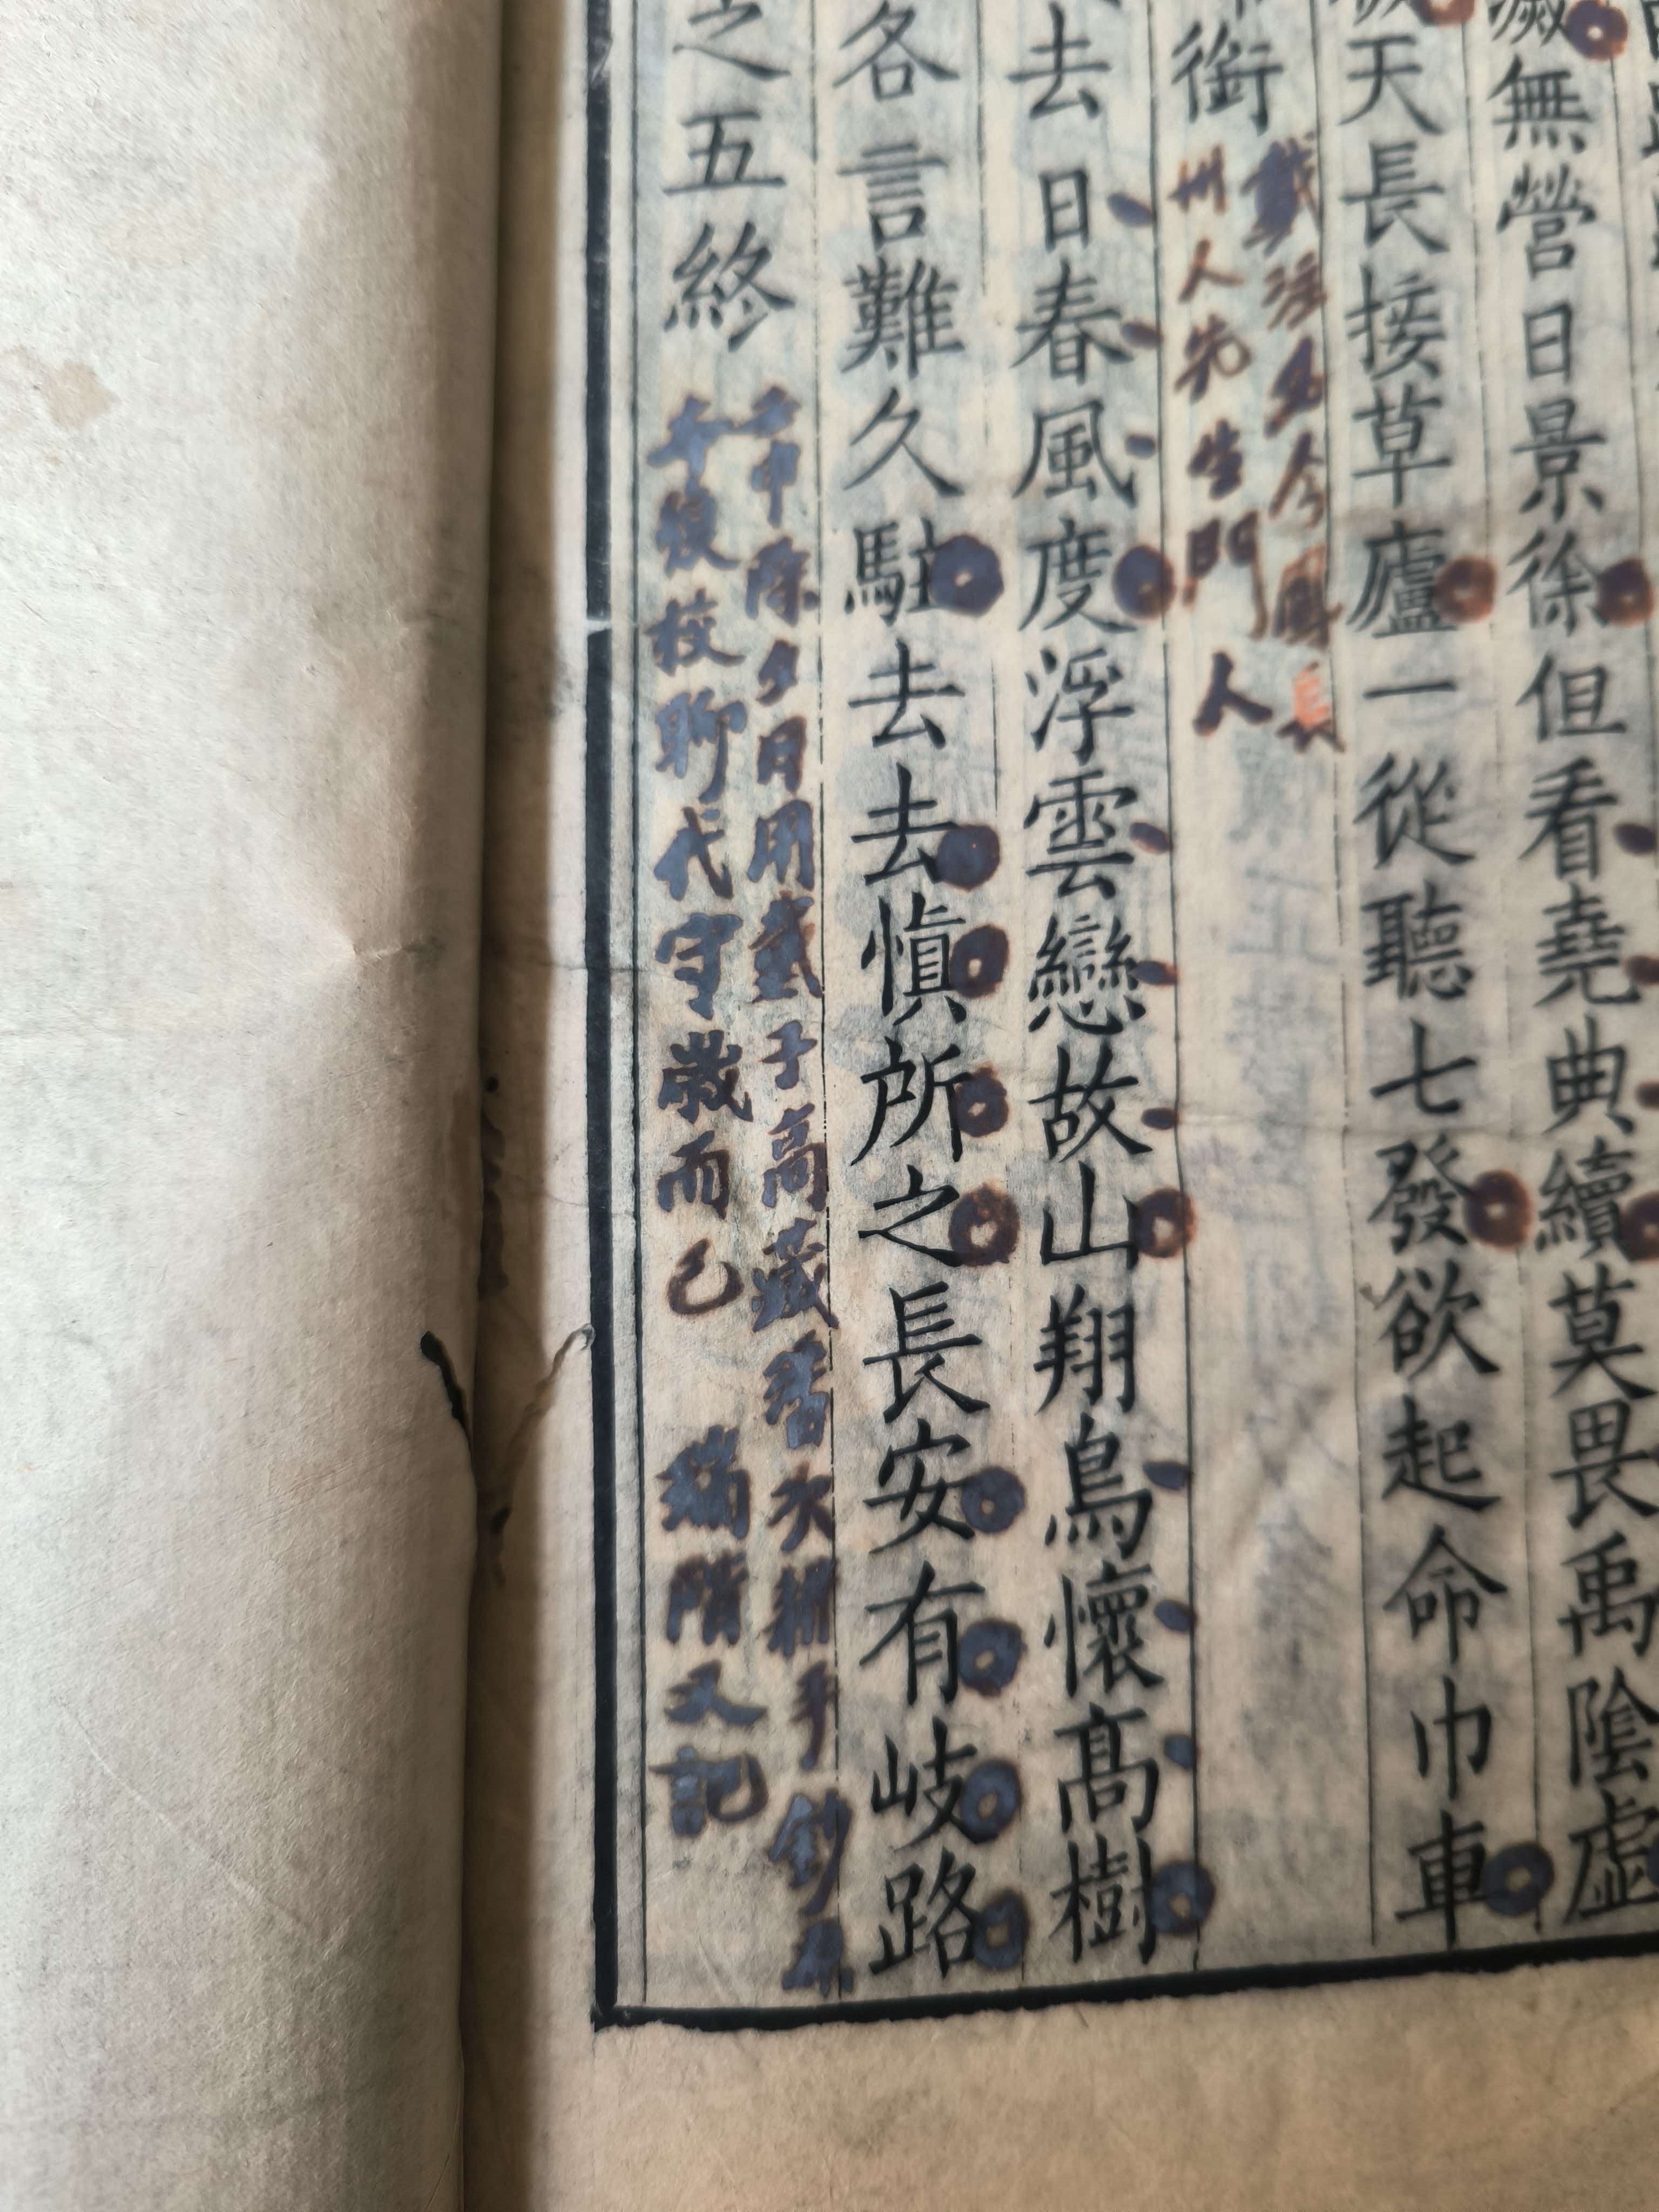 無營日景徐但看堯典續莫畏禹陰虛
天長接草廬一從聽七發欲起命巾車
銜
戴注名今鳳長
州人先生門人
去日春風度浮雲戀故山翔鳥懷高樹
各言難久駐去去慎所之長安有岐路
之五終
除夕日用戴子高藏書大鶴手鈔本
午後校聊代守歲而已 瑞階又記